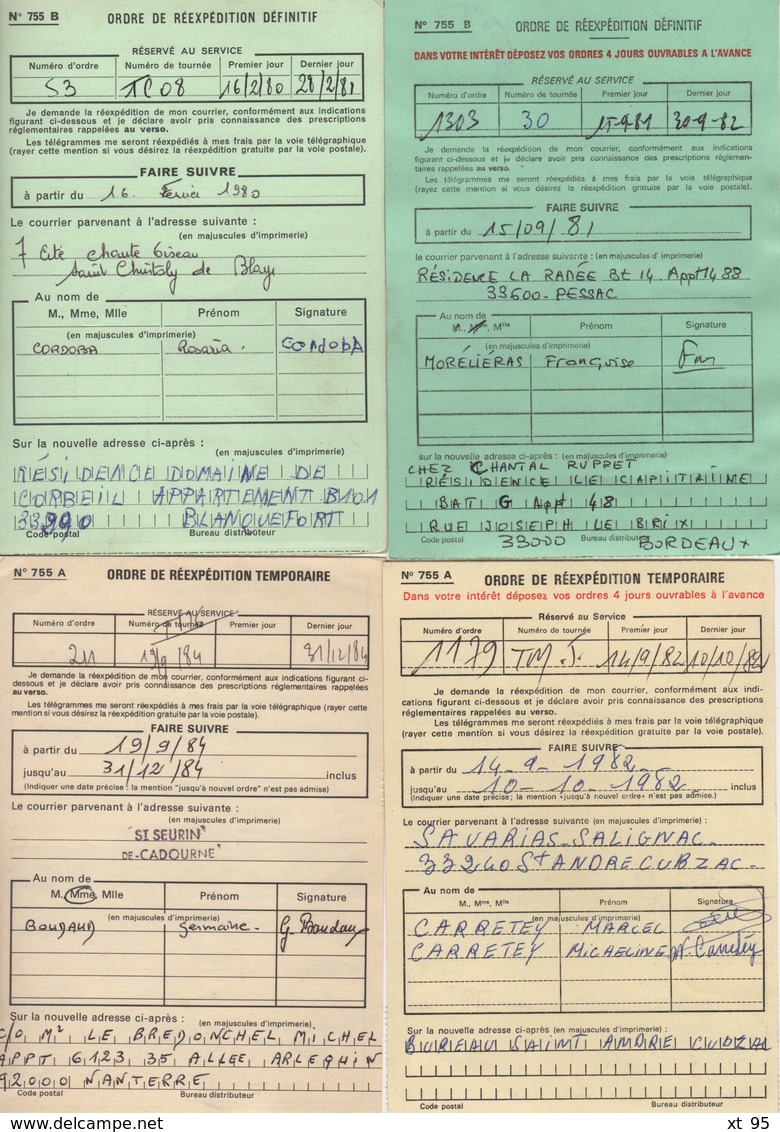 N° 755 B ORDRE DE RÉEXPÉDITION DÉFINITIF
RÉSERVÉ AU SERVICE
Numéro d'ordre Numéro de tournée Premier jour Dernier jour
53 TC08 16/2/80 28/2/81
Je demande la réexpédition de mon courrier, conformément aux indications
figurant ci-dessous et je déclare avoir pris connaissance des prescriptions
réglementaires rappelées au verso.
Les télégrammes me seront réexpédiés à mes frais par la voie télégraphique
(rayer cette mention si vous désirez la réexpédition gratuite par la voie postale).
FAIRE SUIVRE
à partir du 16 Fevrier 1980
Le courrier parvenant à l'adresse suivante :
(en majuscules d'imprimerie)
7 Cité chante Oiseau
Saint Christoly de Blaye
Au nom de
M., Mme, Mlle Prénom Signature
(en majuscules d'imprimerie)
CORDOBA Rosaria. CORDOBA
Sur la nouvelle adresse ci-après :
(en majuscules d'imprimerie)
RÉSIDENCE DOMAINE DE
CORBEIL APPARTEMENT B101
33290 BLANQUEFORT
Code postal Bureau distributeur
N° 755 B ORDRE DE RÉEXPÉDITION DÉFINITIF
DANS VOTRE INTÉRÊT DÉPOSEZ VOS ORDRES 4 JOURS OUVRABLES A L'AVANCE
RÉSERVÉ AU SERVICE
Numéro d'ordre Numéro de tournée Premier jour Dernier jour
1303 30 15-9-81 30-9-82
Je demande la réexpédition de mon courrier, conformément aux indications
figurant ci-dessous et je déclare avoir pris connaissance des prescriptions réglemen-
taires rappelées au verso.
Les télégrammes me seront réexpédiés à mes frais par la voie télégraphique
(rayez cette mention si vous désirez la réexpédition gratuite par la voie postale).
FAIRE SUIVRE
à partir du 15/09/81
le courrier parvenant à l'adresse suivante : (en majuscules d'imprimerie)
RÉSIDENCE LA RADÉE Bt 14. Appt 1488
33600 - PESSAC
Au nom de
M., Mme, Mlle Prénom Signature
(en majuscules d'imprimerie)
MORÉLIÉRAS Françoise
sur la nouvelle adresse ci-après : (en majuscules d'imprimerie)
CHEZ CHANTAL RUPRET
RESIDENCE LE CAPITAINE
BAT G Appt 48
RUE JOSEPH LE BRIX
Code postal 33000 Bureau distributeur BORDEAUX
N° 755 A ORDRE DE RÉEXPÉDITION TEMPORAIRE
RÉSERVÉ AU SERVICE
Numéro d'ordre Numéro de tournée Premier jour Dernier jour
211 19/9/84 31/12/84
Je demande la réexpédition de mon courrier, conformément aux indications figurant ci-
dessous et je déclare avoir pris connaissance des prescriptions réglementaires rappelées
au verso.
Les télégrammes me seront réexpédiés à mes frais par la voie télégraphique (rayer cette
mention si vous désirez la réexpédition gratuite par la voie postale).
FAIRE SUIVRE
à partir du 19/9/84
jusqu'au 31/12/84 inclus
(Indiquer une date précise : la mention "jusqu'à nouvel ordre" n'est pas admise)
Le courrier parvenant à l'adresse suivante :
(en majuscules d'imprimerie)
"ST SEURIN"
DE-CADOURNE"
Au nom de
M. Mme, Mlle Prénom Signature
(en majuscules d'imprimerie)
BOUDAUD Germaine - G. Boudaud
Sur la nouvelle adresse ci-après :
(en majuscules d'imprimerie)
C/O Mr LE BREDONCHEL MICHEL
APPT 6123 35 ALLEE ARLEQUIN
92000 NANTERRE
Code postal Bureau distributeur
N° 755 A ORDRE DE RÉEXPÉDITION TEMPORAIRE
Dans votre intérêt déposez vos ordres 4 jours ouvrables à l'avance
Réservé au Service
Numéro d'ordre Numéro de tournée Premier jour Dernier jour
1179 TM.5. 14/9/82 10/10/82
Je demande la réexpédition de mon courrier, conformément aux indi-
cations figurant ci-dessous et je déclare avoir pris connaissance des prescriptions
réglementaires rappelées au verso.
Les télégrammes me seront réexpédiés à mes frais par la voie télégraphique
(rayer cette mention si vous désirez la réexpédition gratuite par la voie postale).
FAIRE SUIVRE
à partir du 14-9-1982-
jusqu'au 10-10-1982- inclus
(Indiquer une date précise; la mention «jusqu'à nouvel ordre» n'est pas admise.)
Le courrier parvenant à l'adresse suivante (en majuscules d'imprimerie) :
SAVARIAS-SALIGNAC-
33240 St ANDRE CUBZAC-
Au nom de
M., Mme, Mlle Prénom Signature
(en majuscules d'imprimerie)
CARRETEY MARCEL
CARRETEY MICHELINE
Sur la nouvelle adresse ci-après (en majuscules d'imprimerie) :
BUREAU SAINT ANDRE CUBZAC
Code postal Bureau distributeur
xt 95